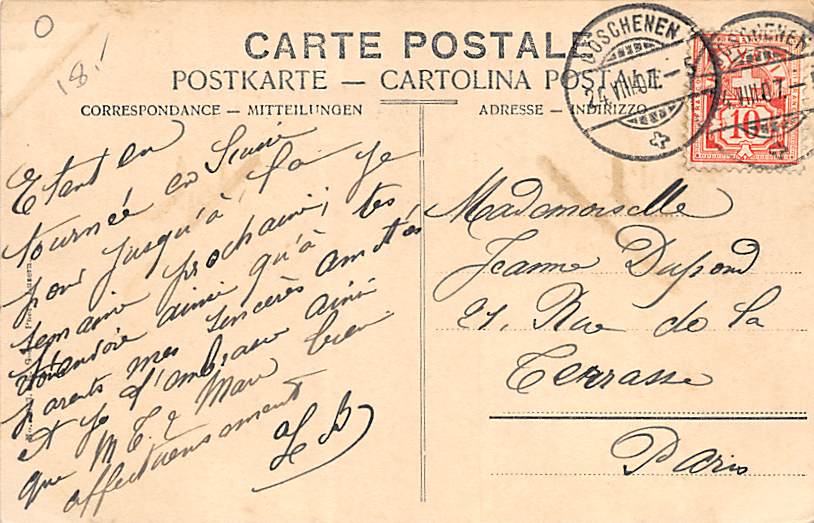 O
18.-
CARTE POSTALE
POSTKARTE — CARTOLINA POSTALE
CORRESPONDANCE — MITTEILUNGEN
ADRESSE — INDIRIZZO
GÖSCHENEN
24.VIII.07.
5
GÖSCHENEN
24.VIII.07.
10
Etant en
tournée en Suisse
pour jusqu'à la
semaine prochaine, je
t'envoie ainsi qu'à tes
parents mes sincères amitiés
et je t'embrasse ainsi
que M. T. & Marc bien
affectueusement
Mademoiselle
Jeanne Dupond
21, Rue de la
Terrasse
Paris